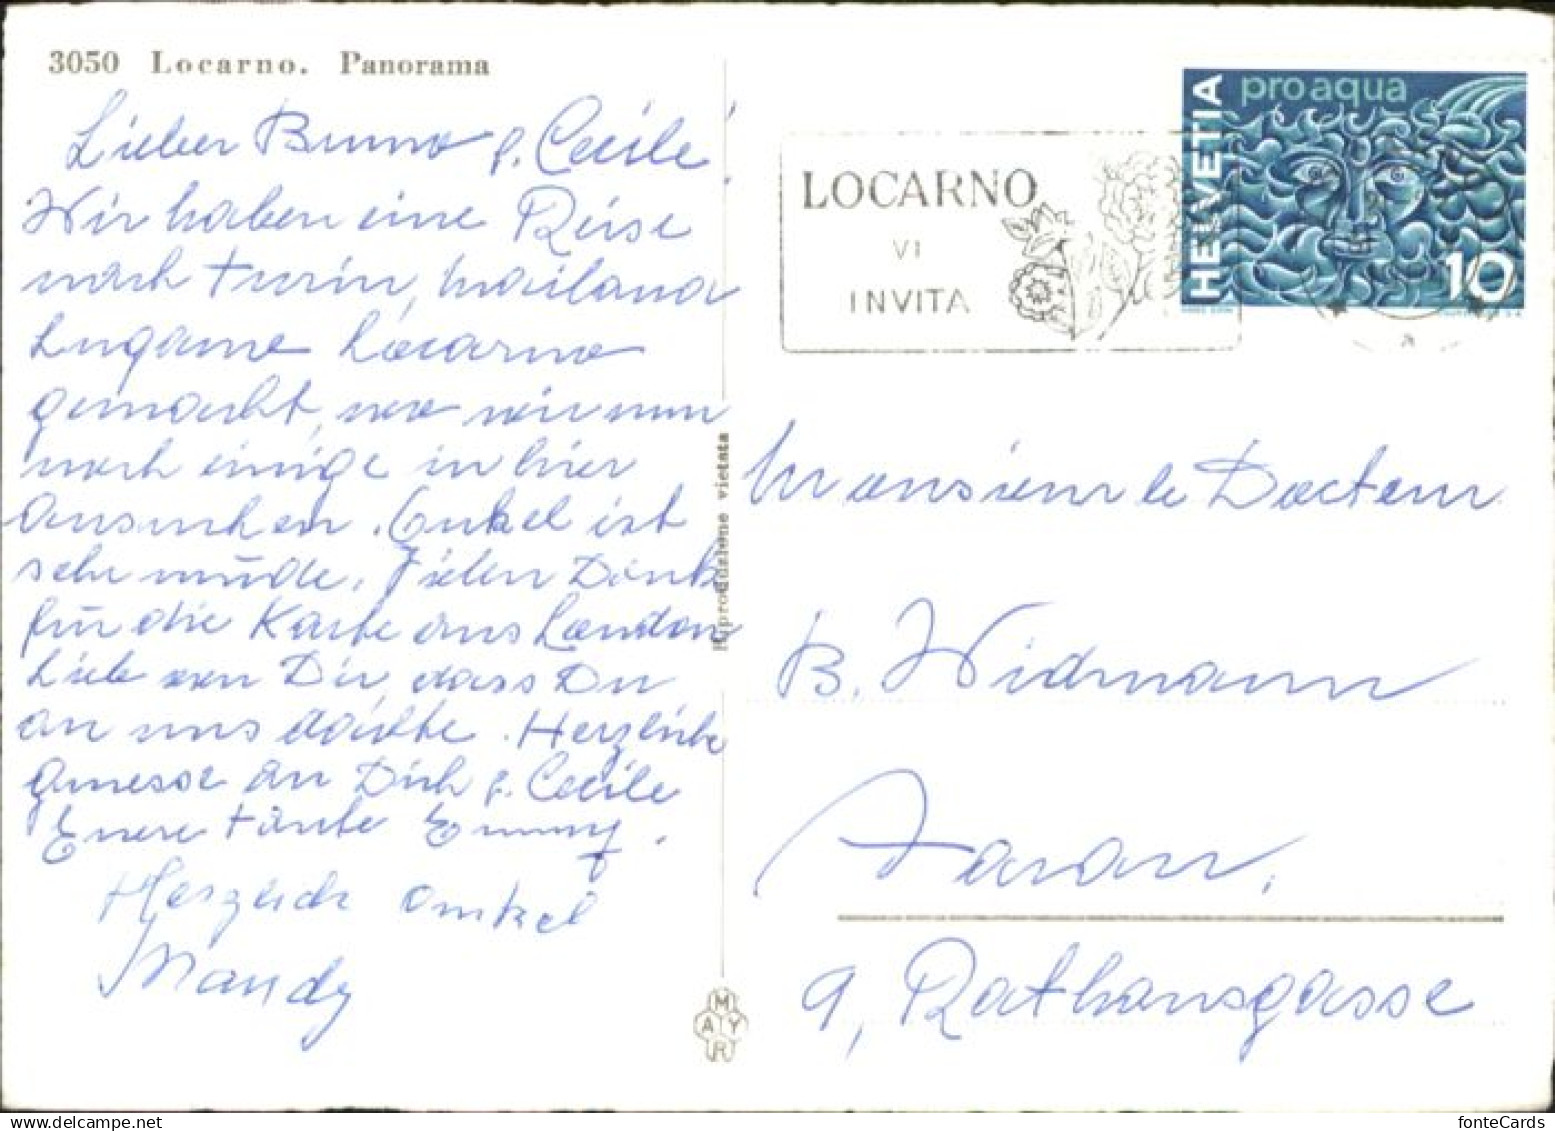 3050 Locarno. Panorama
Lieber Bruno & Cecile!
Wir haben eine Reise
nach Turin, Mailand
Lugano Locarno
gemacht, wo wir nun
noch einige in hier
ansuchen. Onkel ist
sehr müde. Vielen Dank
für die Karte aus London
Lieb von Dir, dass Du
an uns dachte. Herzliche
Gruesse an Dich & Cecile
Euere Tante Emmy.
Herzlich Onkel
Mandy
Riproduzione vietata
MAYR
LOCARNO
VI
INVITA
HELVETIA
pro aqua
10
Monsieur le Docteur
B. Widmann
Aarau,
9, Rathausgasse
fonteCards